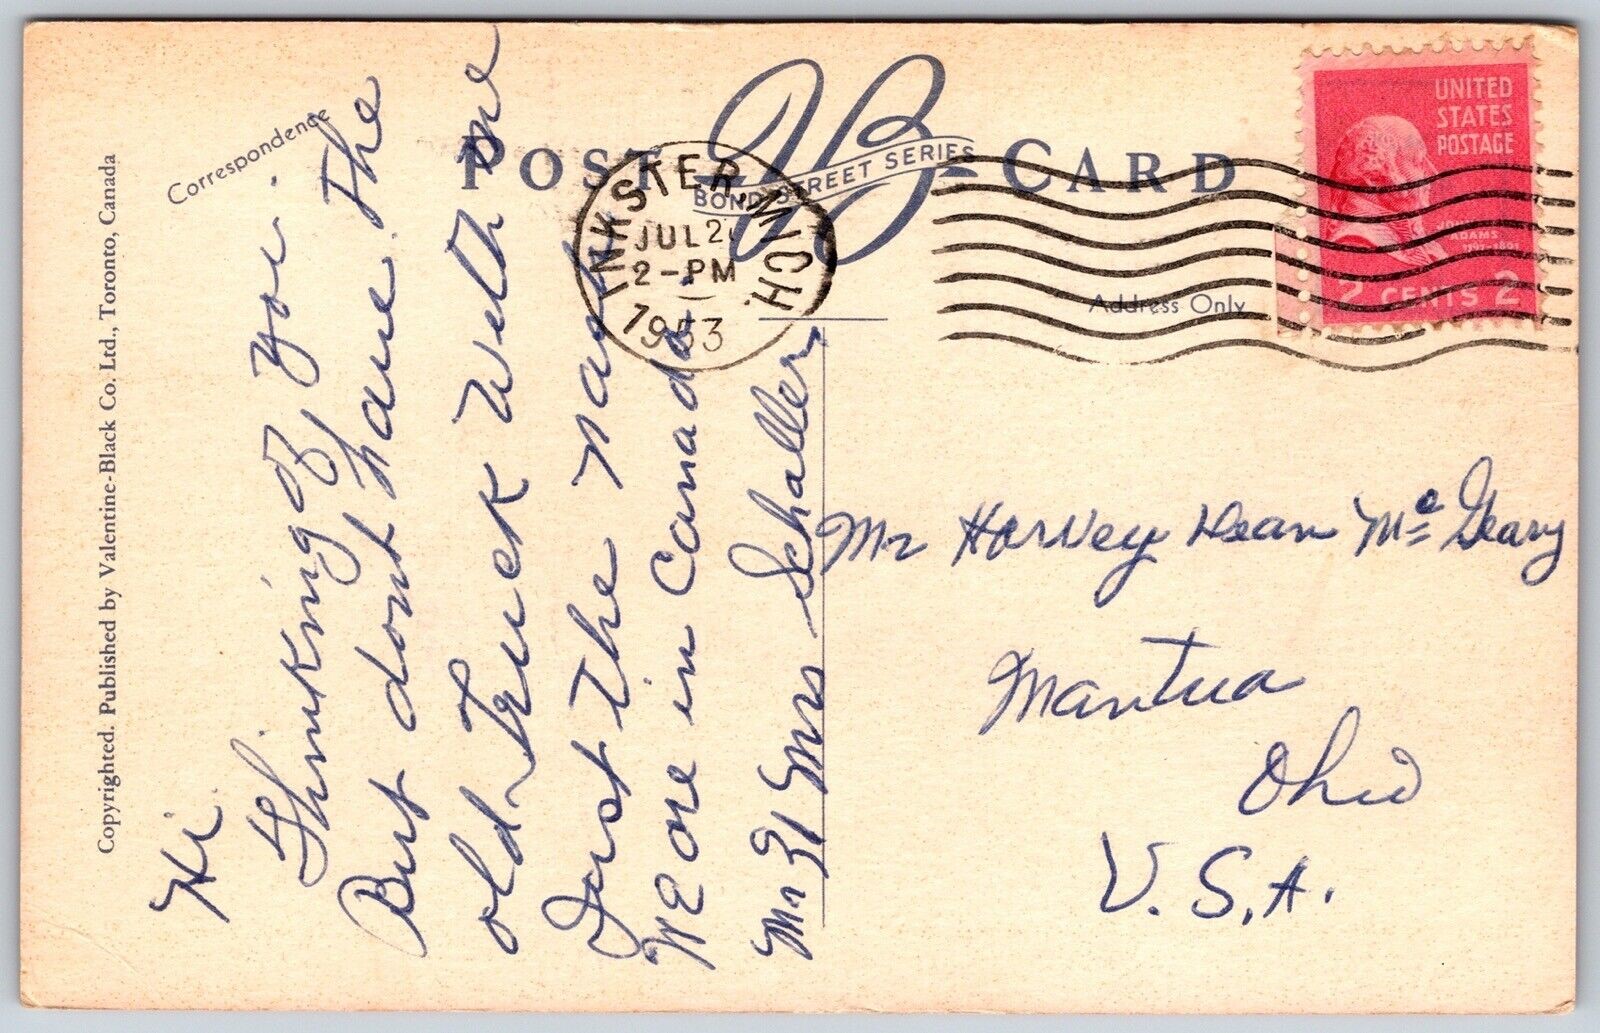 Copyrighted. Published by Valentine-Black Co. Ltd., Toronto, Canada
Correspondence
POST CARD
BOND STREET SERIES
Address Only
INKSTER, MICH.
JUL 2
2-PM
1953
UNITED
STATES
POSTAGE
JOHN
ADAMS
1797-1801
2 CENTS 2
Hi
Thinking of you.
But dont have the
old Truck with me
Just the Nash
We are in Canada
Mr & Mrs Schaller
Mr Harvey Dean Mc Geary
Mantua
Ohio
U.S.A.